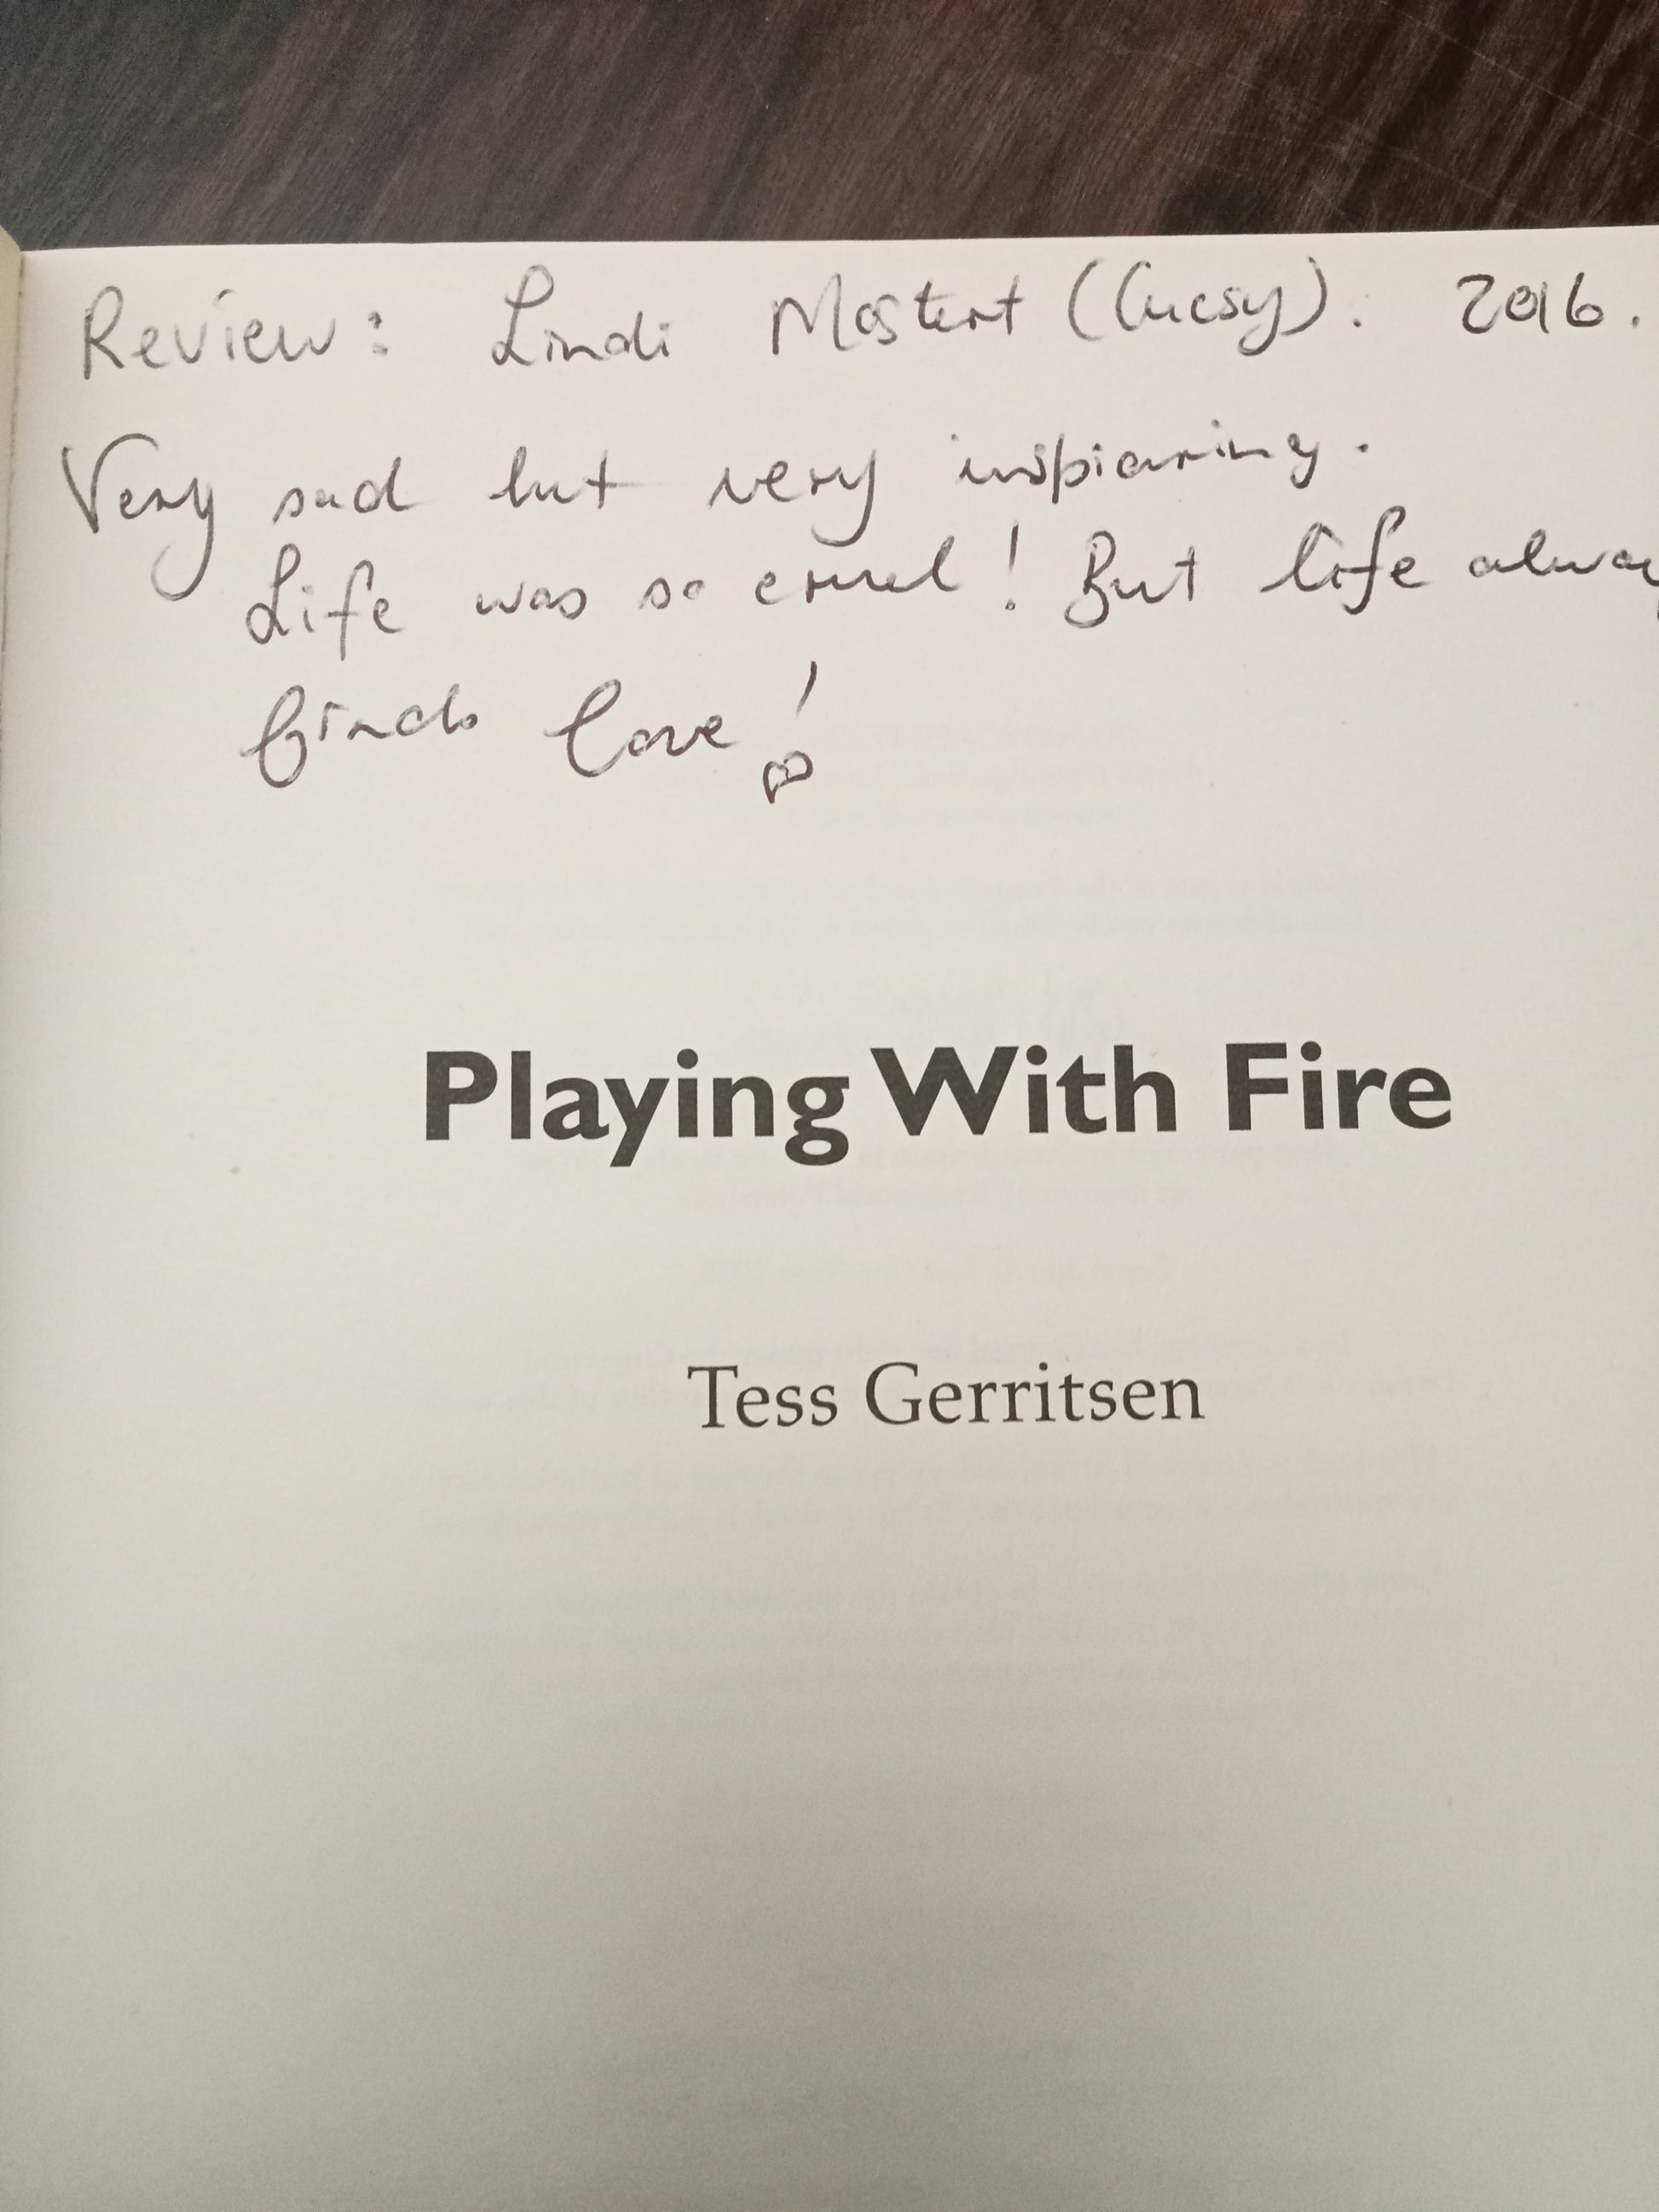 Review: Lindi Mostert (Cuesy). 2016.
Very sad but very inspiaring.
Life was so cruel! But life alway
finds love!
Playing With Fire
Tess Gerritsen